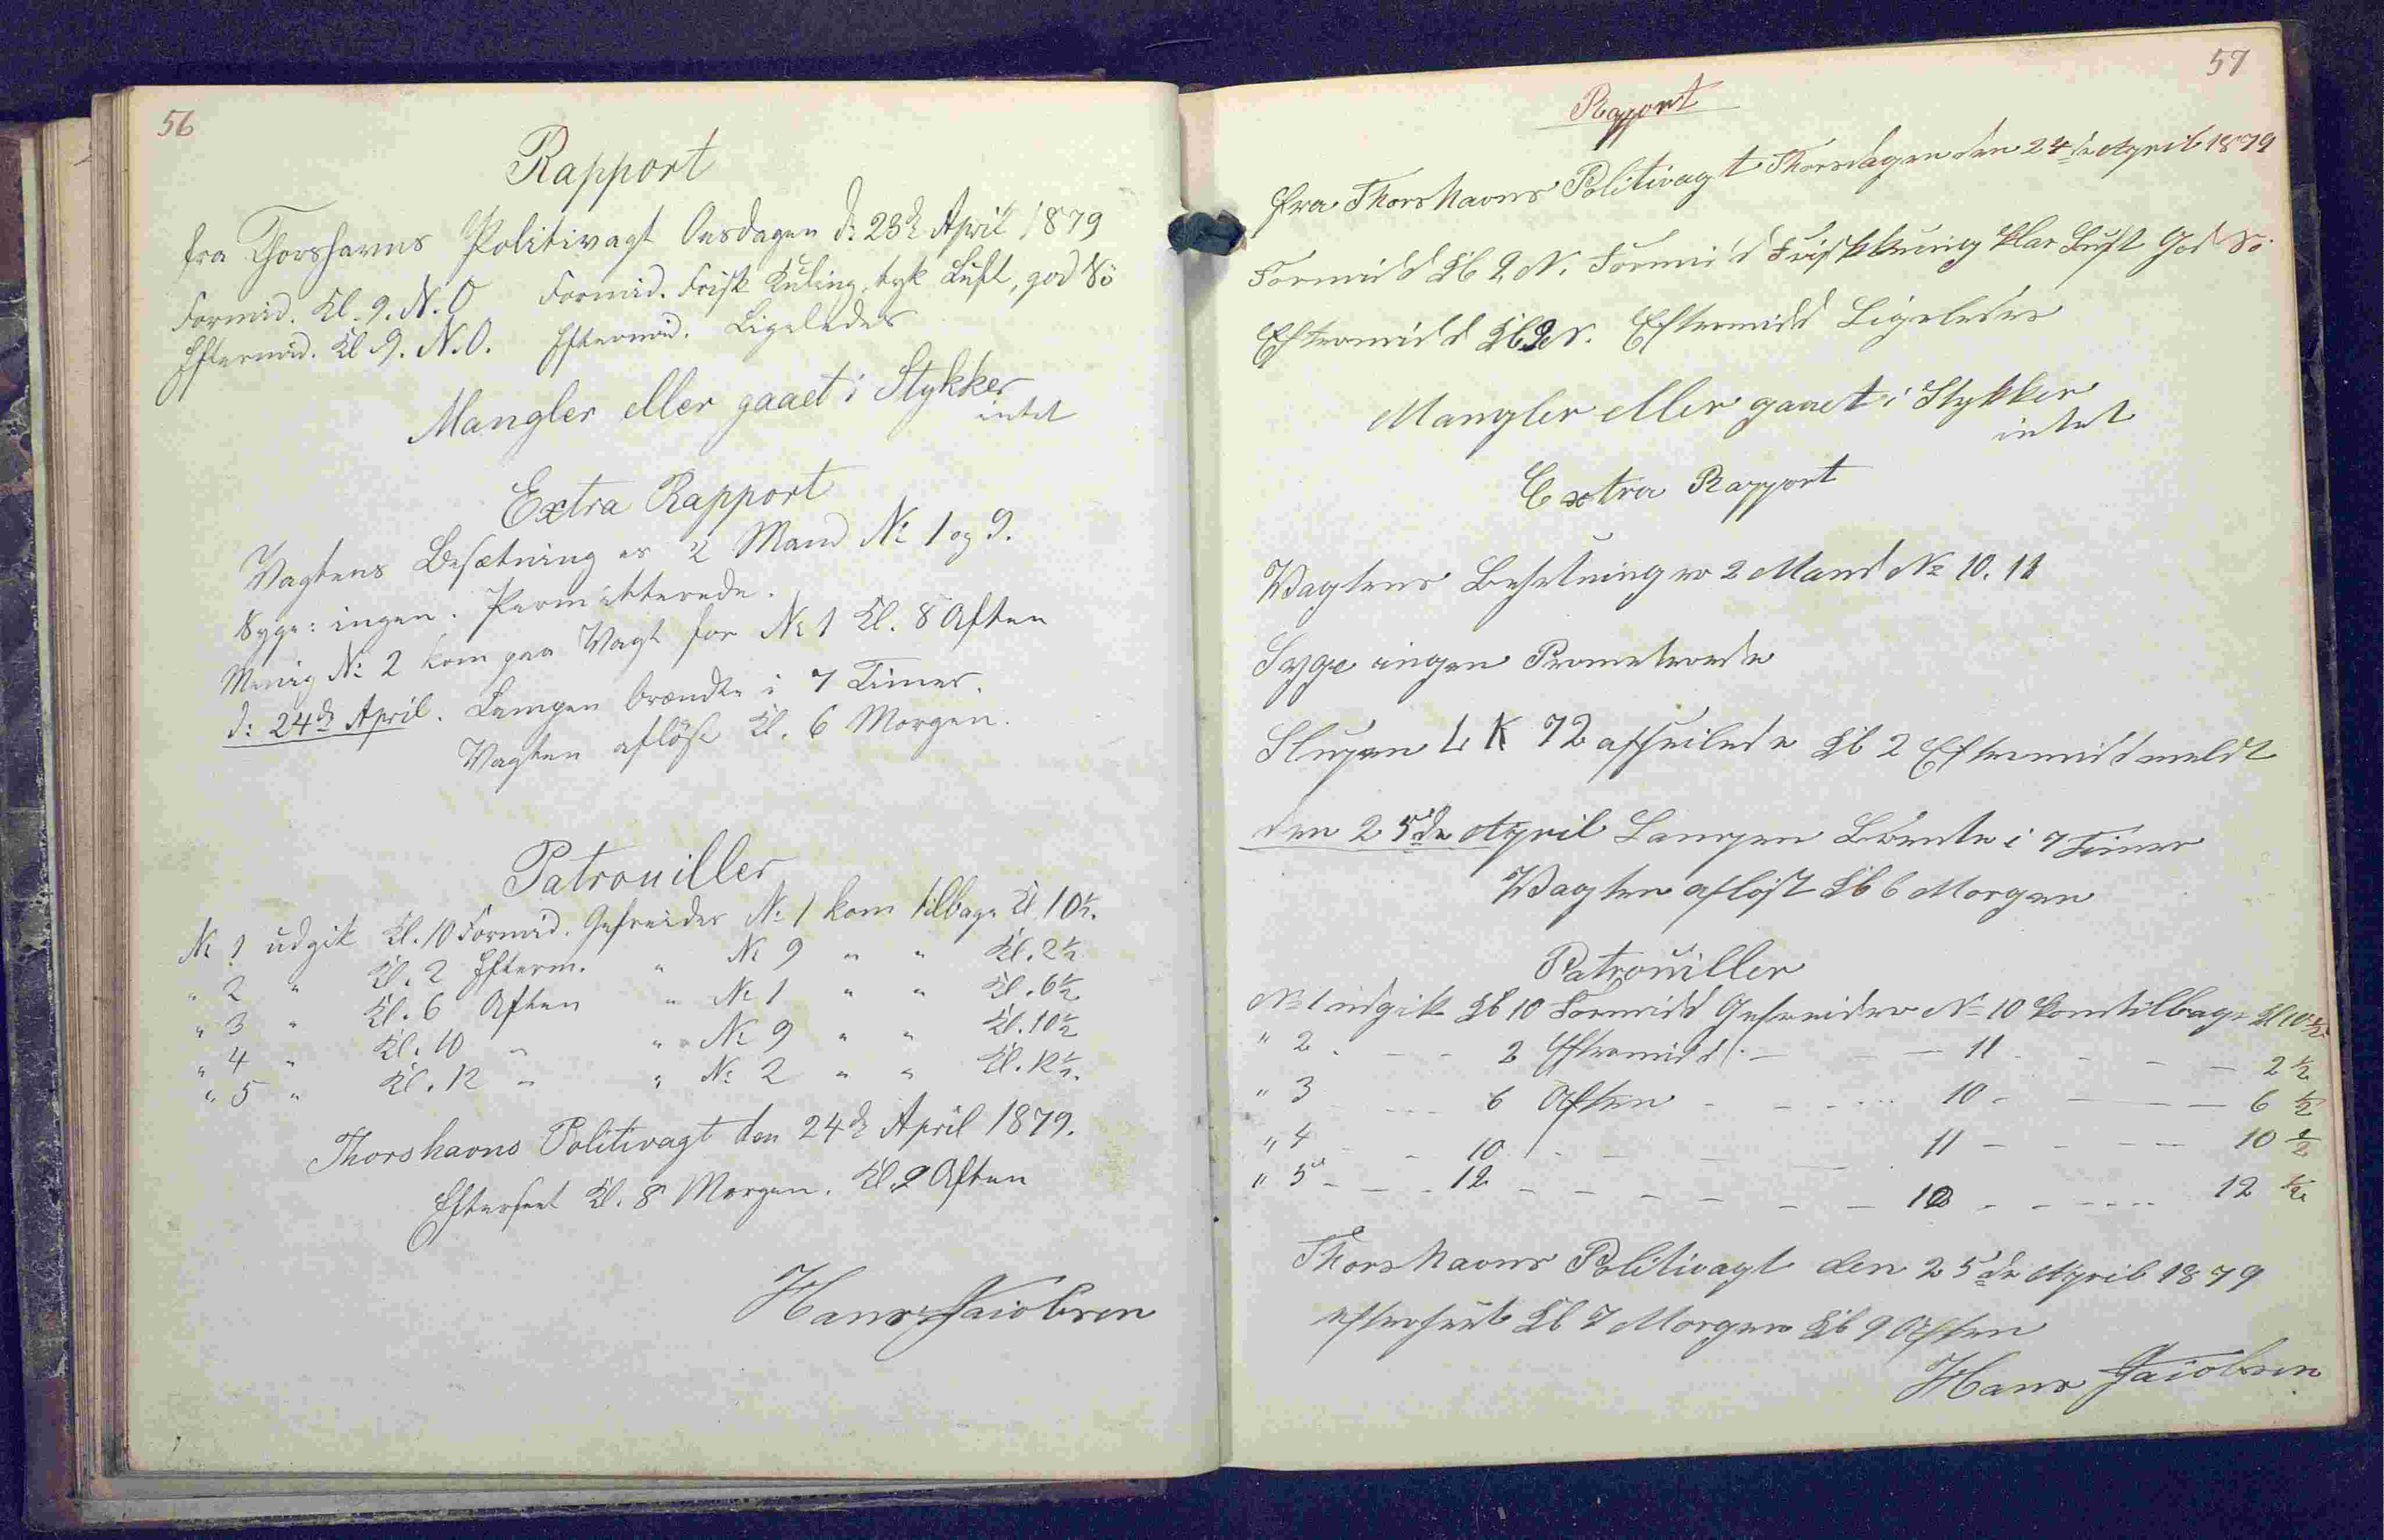 56
Rapport
fra Thorshavns Politivagt Onsdagen d: 23d April 1879
Formid. Kl. 9. N.O Formid. Frisk Kuling, tyk Luft, god Sö
Eftermid. Kl 9. N.O. Eftermid. Ligeledes
Mangler eller gaaet i Stykker
intet
Extra Rapport
Vagtens Besætning er 2 Mand No 1 og 9.
Syge: ingen. Permitterede.
Menig No 2 kom paa Vagt for No 1 Kl. 8 Aften
d: 24d April. Lampen brændte i 7 Timer.
Vagten aflöst Kl. 6 Morgen.
Patrouiller
No 1 udgik Kl. 10 Formid. Gefreider No 1 kom tilbage Kl. 10½.
" 2 " Kl. 2 Efterm. " No 9 " " Kl. 2½
" 3 " Kl. 6 Aften " No 1 " " Kl. 6½
" 4 " Kl. 10 " " No 9 " " Kl. 10½
" 5 " Kl. 12 " " No 2 " " Kl. 12½.
Thorshavns Politivagt den 24d April 1879.
Efterseet Kl. 8 Morgen. Kl 9 Aften
Hans Jacobsen
57
Rapport
fra Thorshavns Politivagt Thorsdagen den 24de April 1879
Formidd Kl 9 N. Formid Frisk Kuling klar Luft God Sö
Eftermidd Kl 9 N. Eftermidd Ligeledes
Mangler eller gaaet i Stykker
intet
Extra Rapport
Vagtens Besetning er 2 Mand No 10. 11
Syge ingen Prometerede
Slupen L K 72 afseilede Kl 2 Eftermidd meldt
den 25de April Lampen Brente i 7 Timer
Vagten aflöst Kl 6 Morgen
Patrouiller
No 1 udgik Kl 10 Formidd Gefreider No 10 kom tilbage Kl 10½
" 2 - - - 2 Eftermidd - - 11 - - - 2½
" 3 - - - 6 Aften - - - 10 - - - 6½
" 4 - - 10 - - - 11 - - - 10½
" 5 - - - 12 - - - - - - 10 - - - 12½
Thorshavns Politivagt den 25de April 1879
efterseet Kl 7 Morgen Kl 9 Aften
Hans Jacobsen